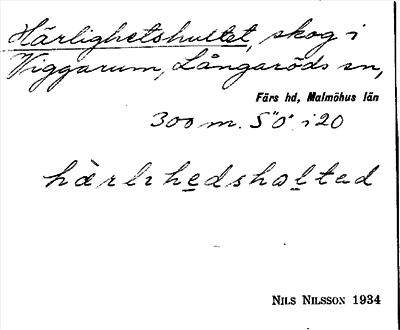 Härlighetshultet, skog i
Viggarum, Långaröds sn,
Färs hd, Malmöhus län
300 m. S"O" i 20
hàrlıhedsholtəd
NILS NILSSON 1934